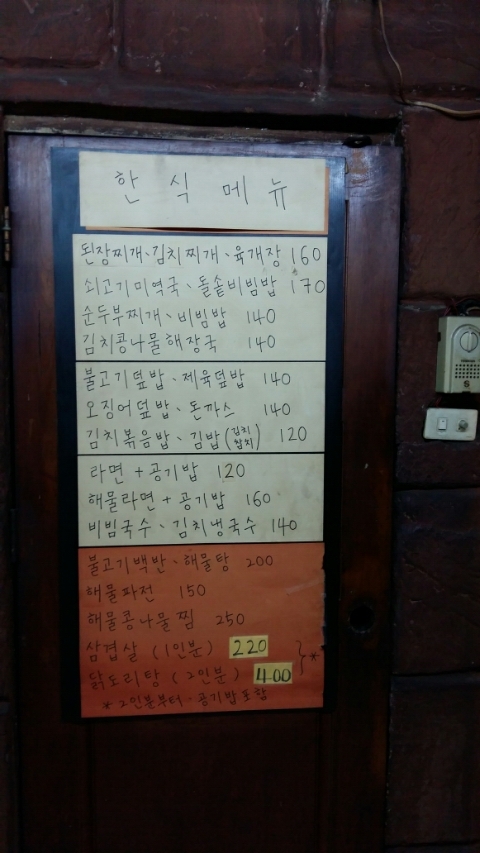 한 식 메 뉴
된장찌개、김치찌개、육개장 160
쇠고기미역국、돌솥비빔밥 170
순두부찌개、비빔밥 140
김치콩나물해장국 140
불고기덮밥、제육덮밥 140
오징어덮밥、돈까스 140
김치볶음밥、김밥(김치 참치) 120
라면 + 공기밥 120
해물라면 + 공기밥 160
비빔국수、김치냉국수 140
불고기백반、해물탕 200
해물파전 150
해물콩나물찜 250
삼겹살 (1인분) 220
닭도리탕 (2인분) 400 } *
* 2인분부터 · 공기밥포함